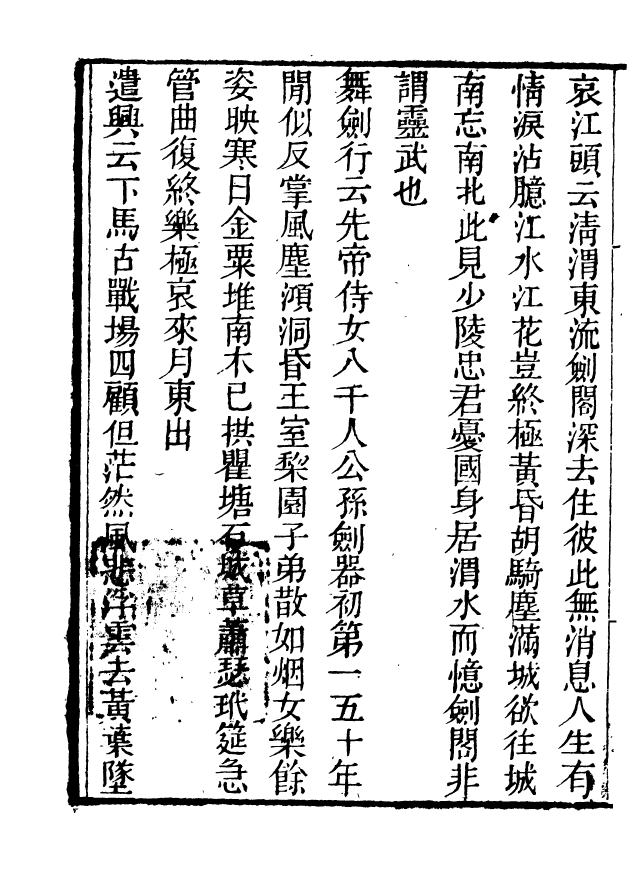 哀江頭云淸渭東流劍閣深去住彼此無消息人生有
情淚沾臆江水江花豈終極黃昏胡騎塵滿城欲往城
南忘南北此見少陵忠君憂國身居渭水而憶劍閣非
謂靈武也
舞劍行云先帝侍女八千人公孫劍器初第一五十年
閒似反掌風塵澒洞昏王室梨園子弟散如烟女樂餘
姿映寒日金粟堆南木已拱瞿塘石城草蕭瑟玳筵急
管曲復終樂極哀來月東出
遣興云下馬古戰場四顧但茫然風悲浮雲去黃葉墜